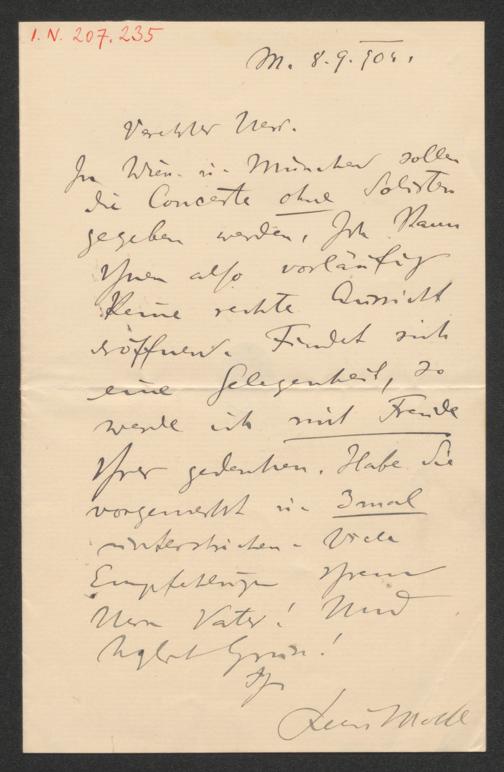 I. N. 207.235
M. 8.9.904.
Verehrter Herr.
In Wien u. München sollen
die Concerte ohne Solisten
gegeben werden, Ich kann
Ihnen also vorläufig
keine rechte Aussicht
eröffnen. Findet sich
eine Gelegenheit, so
werde ich mit Freude
Ihrer gedenken. Habe Sie
vorgemerkt u. 3mal
unterstrichen. Viele
Empfehlungen Ihrem
Herrn Vater! Und
Gruss!
Ihr